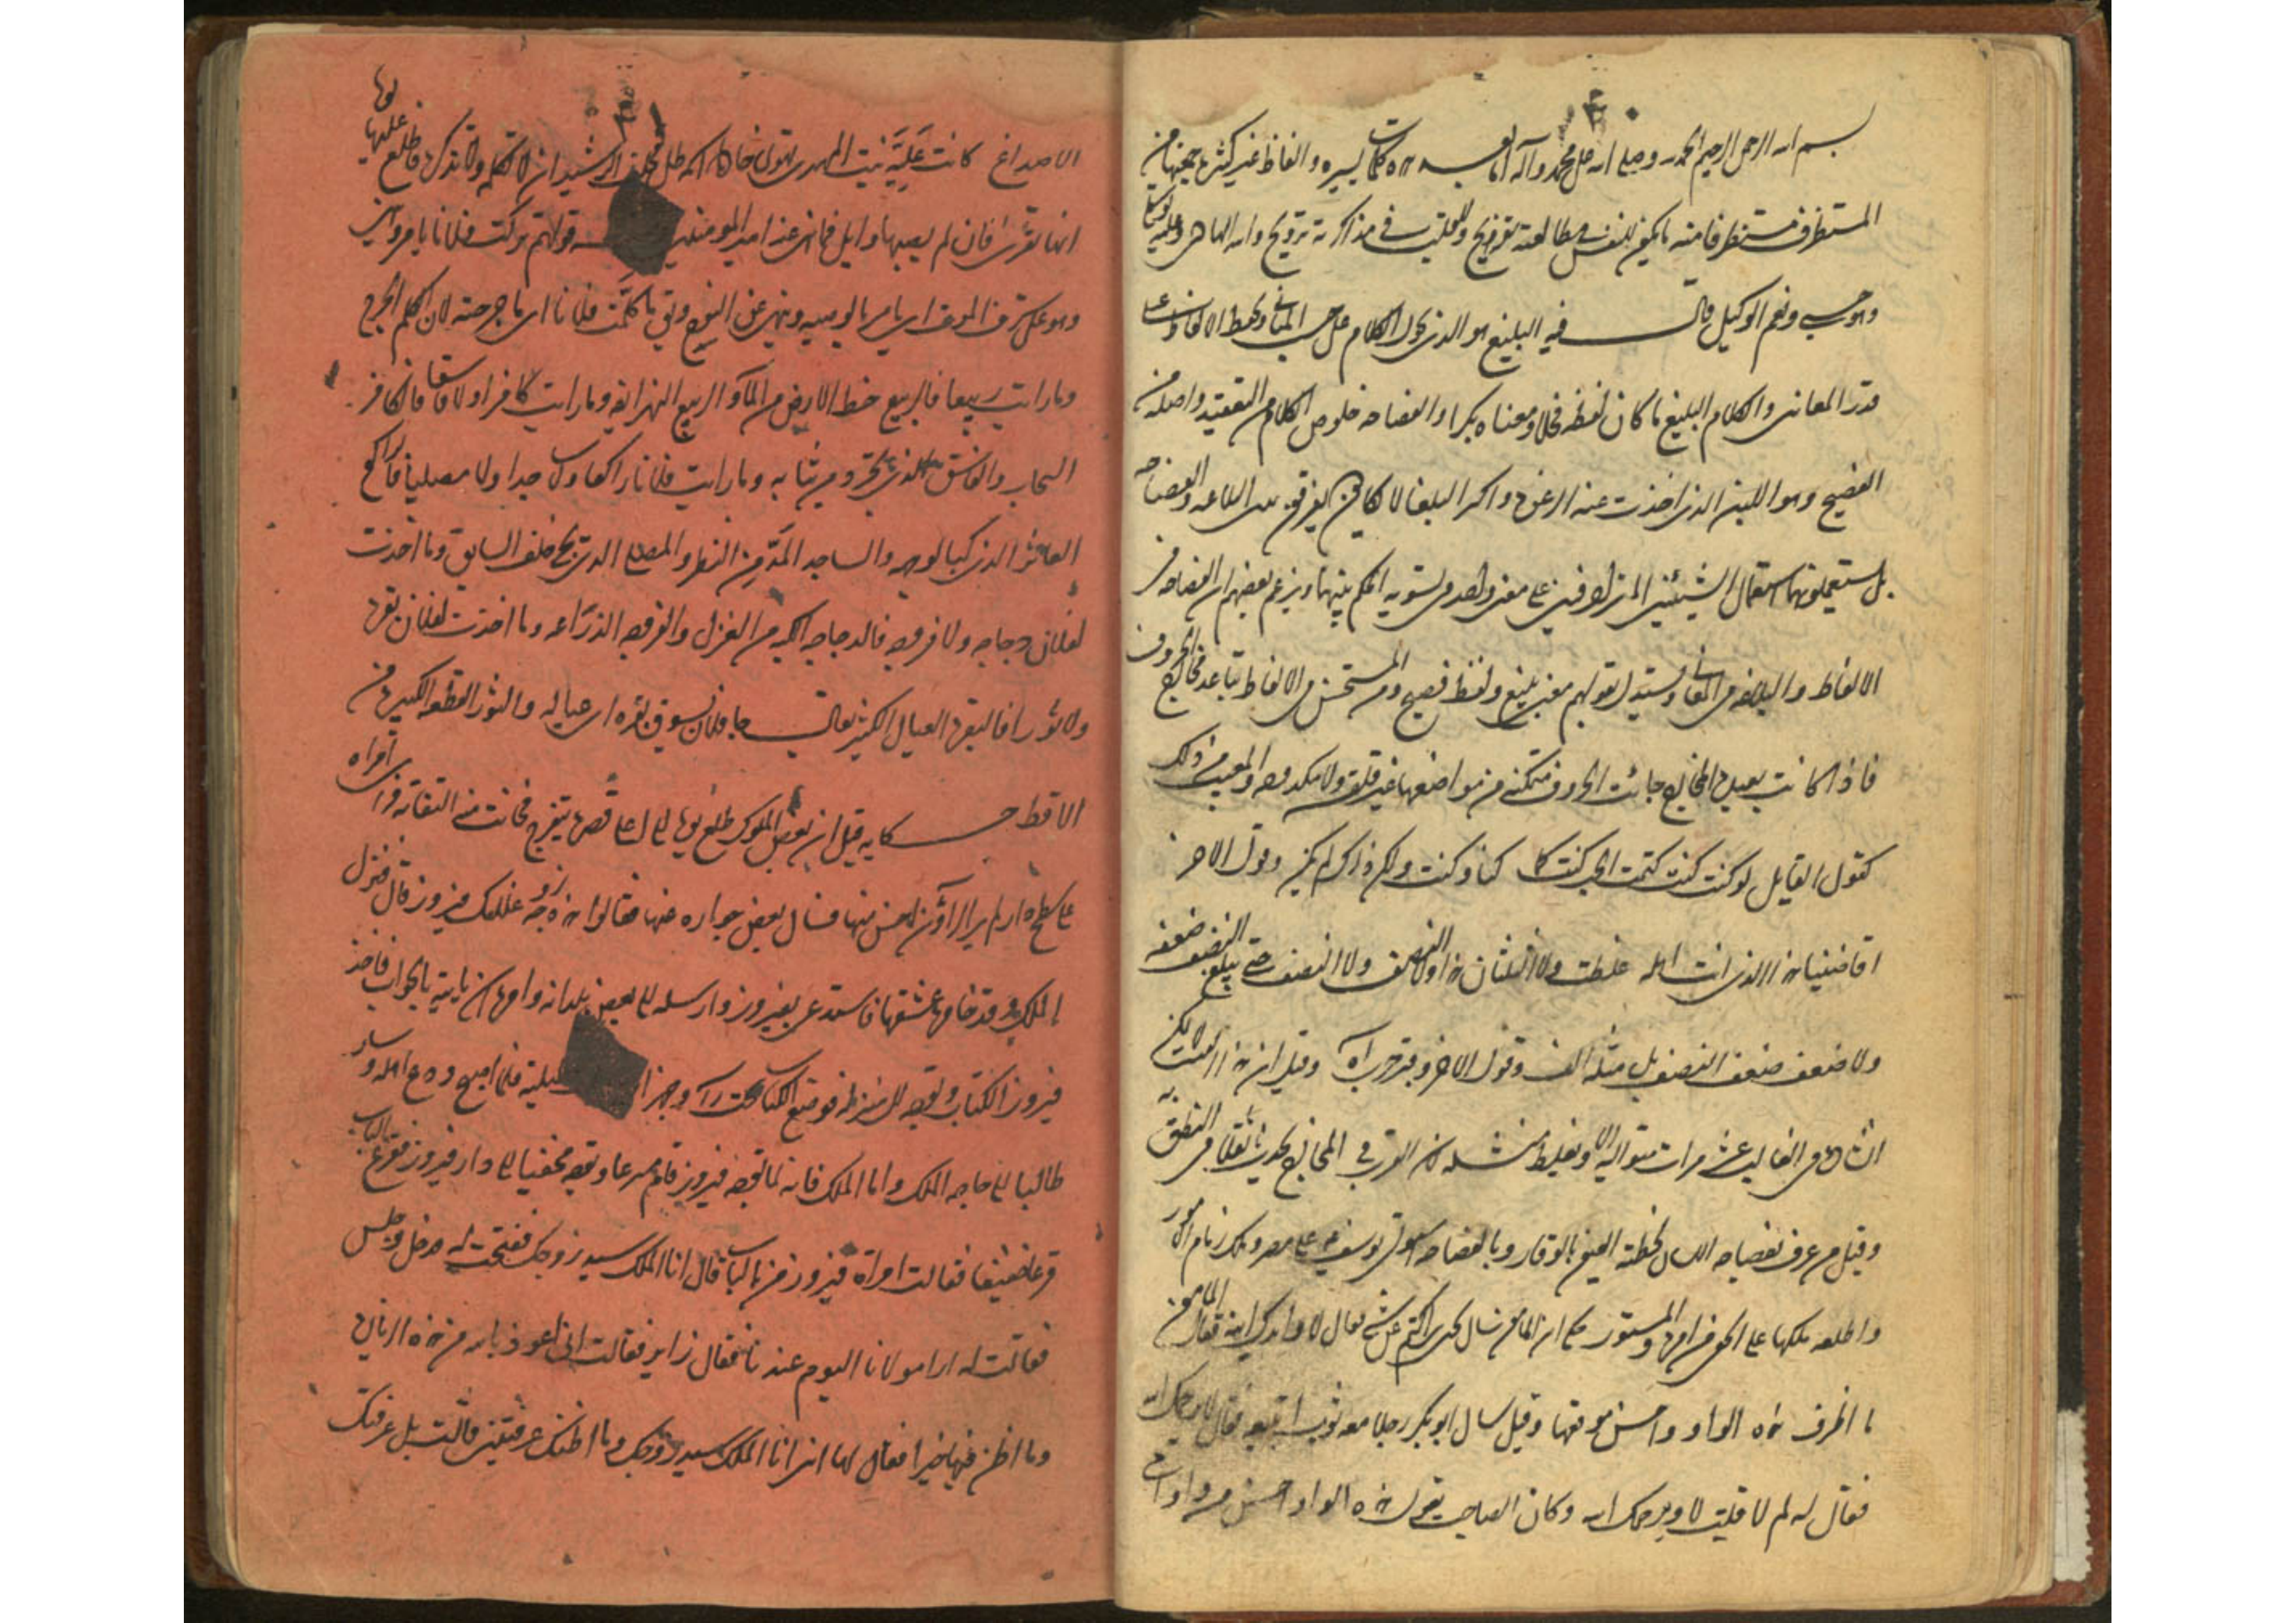 بسم الله الرحمن الرحيم الحمد لله وصلى الله على محمد وآله اما بعد هذه كلمات يسيره والفاظ غير كثيره جمعتها من
المستظرف مستطرفا منه ما يكون للنفس في مطالعته تفريح وللقلب في مذاكرته ترويح والله
وهو حسبي ونعم الوكيل قال فيه البليغ هو الذي يحوك الكلام على حسب المعاني ويخيط الالفاظ على
قدر المعاني والكلام البليغ ما كان لفظه فحلا ومعناه بكرا والفصاحه خلوص الكلام من التعقيد واصله من
الفصيح وهو اللبن الذي اخذت عنه الرغوه واكثر البلغا لا يكادون يفرقون بين البلاغه والفصاحه
بل يستعملونهما استعمال الشيئين المترادفين على معنى واحد في تسويه الحكم بينهما ويزعم بعضهم ان الفصاحه في
الالفاظ والبلاغه في المعاني ويستدل بقولهم معنى بليغ ولفظ فصيح ومن المستحسن في الالفاظ تباعد مخارج الحروف
فاذا كانت بعيده المخارج جائت الحروف متمكنه في مواضعها غير قلقه ولا مكدوده والمعيب من ذلك
كقول القايل لو كنت كنت كتمت الحب كنت كما كنا وكنت ولكن ذاك لم يكن وقول الاخر
ولا الضعف حتى يبلغ الضعف ضعفه
ولا ضعف ضعف الضعف بل مثله الف وقول الاخر وقبر حرب اه وقيل ان هذا البيت لا يمكن
انشاده في الغالب عشر مرات متواليه الا ويغلط منشده لان القرب في المخارج يحدث ثقلا في النطق به
وقيل من عرف بفصاحه اللسان لحظته العيون بالوقار وبالفصاحه استولى يوسف على مصر وملك زمام الامور
واطلعه ملكها على الخفي من امره والمستور حكي ان المامون سال يحيى بن اكثم عن شي فقال لا وايدك الله فقال المامون
ما اظرف هذه الواو واحسن موقعها وقيل سال ابو بكر رجلا معه ثوب اتبيعه فقال لا يرحمك الله
فقال له لم لا قلت لا ويرحمك الله وكان الصاحب يقول هذه الواو احسن من واوات
الاصداغ كانت علية بنت المهدي تهوى خادما اسمه طل فحلف الرشيد ان لا تكلمه ولا تذكره فاطلع عليها يوما
انها تقرئ فان لم يصبها وابل فما نهى عنه امير المومنين قولهم تركت فلانا يامر وينهى
وهو على شرف الموت اي يامر بالوصيه وينهى عن النوح ويقال ما كلمت فلانا اي ما جرحته لان الكلم الجرح
وما رايت ربيعا فالربيع حظ الارض من الماء والربيع النهر ايضا وما رايت كافرا ولا فاسقا فالكافر
السحاب والفاسق الذي تجرد من ثيابه وما رايت فلانا راكعا ولا ساجدا ولا مصليا فالراكع
العاثر الذي كبا لوجهه والساجد المدمن النظر والمصلي الذي يجي خلف السابق وما اخذت
لفلان دجاجه ولا فروجه فالدجاجه الكبه من الغزل والفروجه الدراعه وما اخذت لفلان بقره
ولا ثورا فالبقره العيال الكثير يقال جا فلان يسوق بقره اي عياله والثور القطعه الكبيره من
الاقط حكايه قيل ان بعض الملوك طلع يوما الى اعلى قصره يتفرج فحانت منه التفاته فراى امراه
على سطح دار لم ير الراؤن احسن منها فسال بعض جواره عنها فقالوا هذه زوجه غلامك فيروز قال فنزل
الملك وقد خامره عشقها فاستدعى بفيروز وارسله الى بعض بلدانه وامره ان ياتيه بالجواب فاخذ
فيروز الكتاب وتوجه الى منزله فوضع الكتاب تحت راسه وجهز ليلته فلما اصبح ودع اهله وسار
طالبا الى حاجه الملك واما الملك فانه لما توجه فيروز قام مسرعا وتوجه مختفيا الى دار فيروز فقرع الباب
قرعا خفيفا فقالت امراه فيروز من بالباب قال انا الملك سيد زوجك ففتحت له فدخل وجلس
فقالت له ارى مولانا اليوم عندنا فقال زاير فقالت اني اعوذ بالله من هذه الزياره
وما اظن فيها خيرا فقال لها اني انا الملك سيد زوجك وما اظنك عرفتيني فقالت بل عرفتك